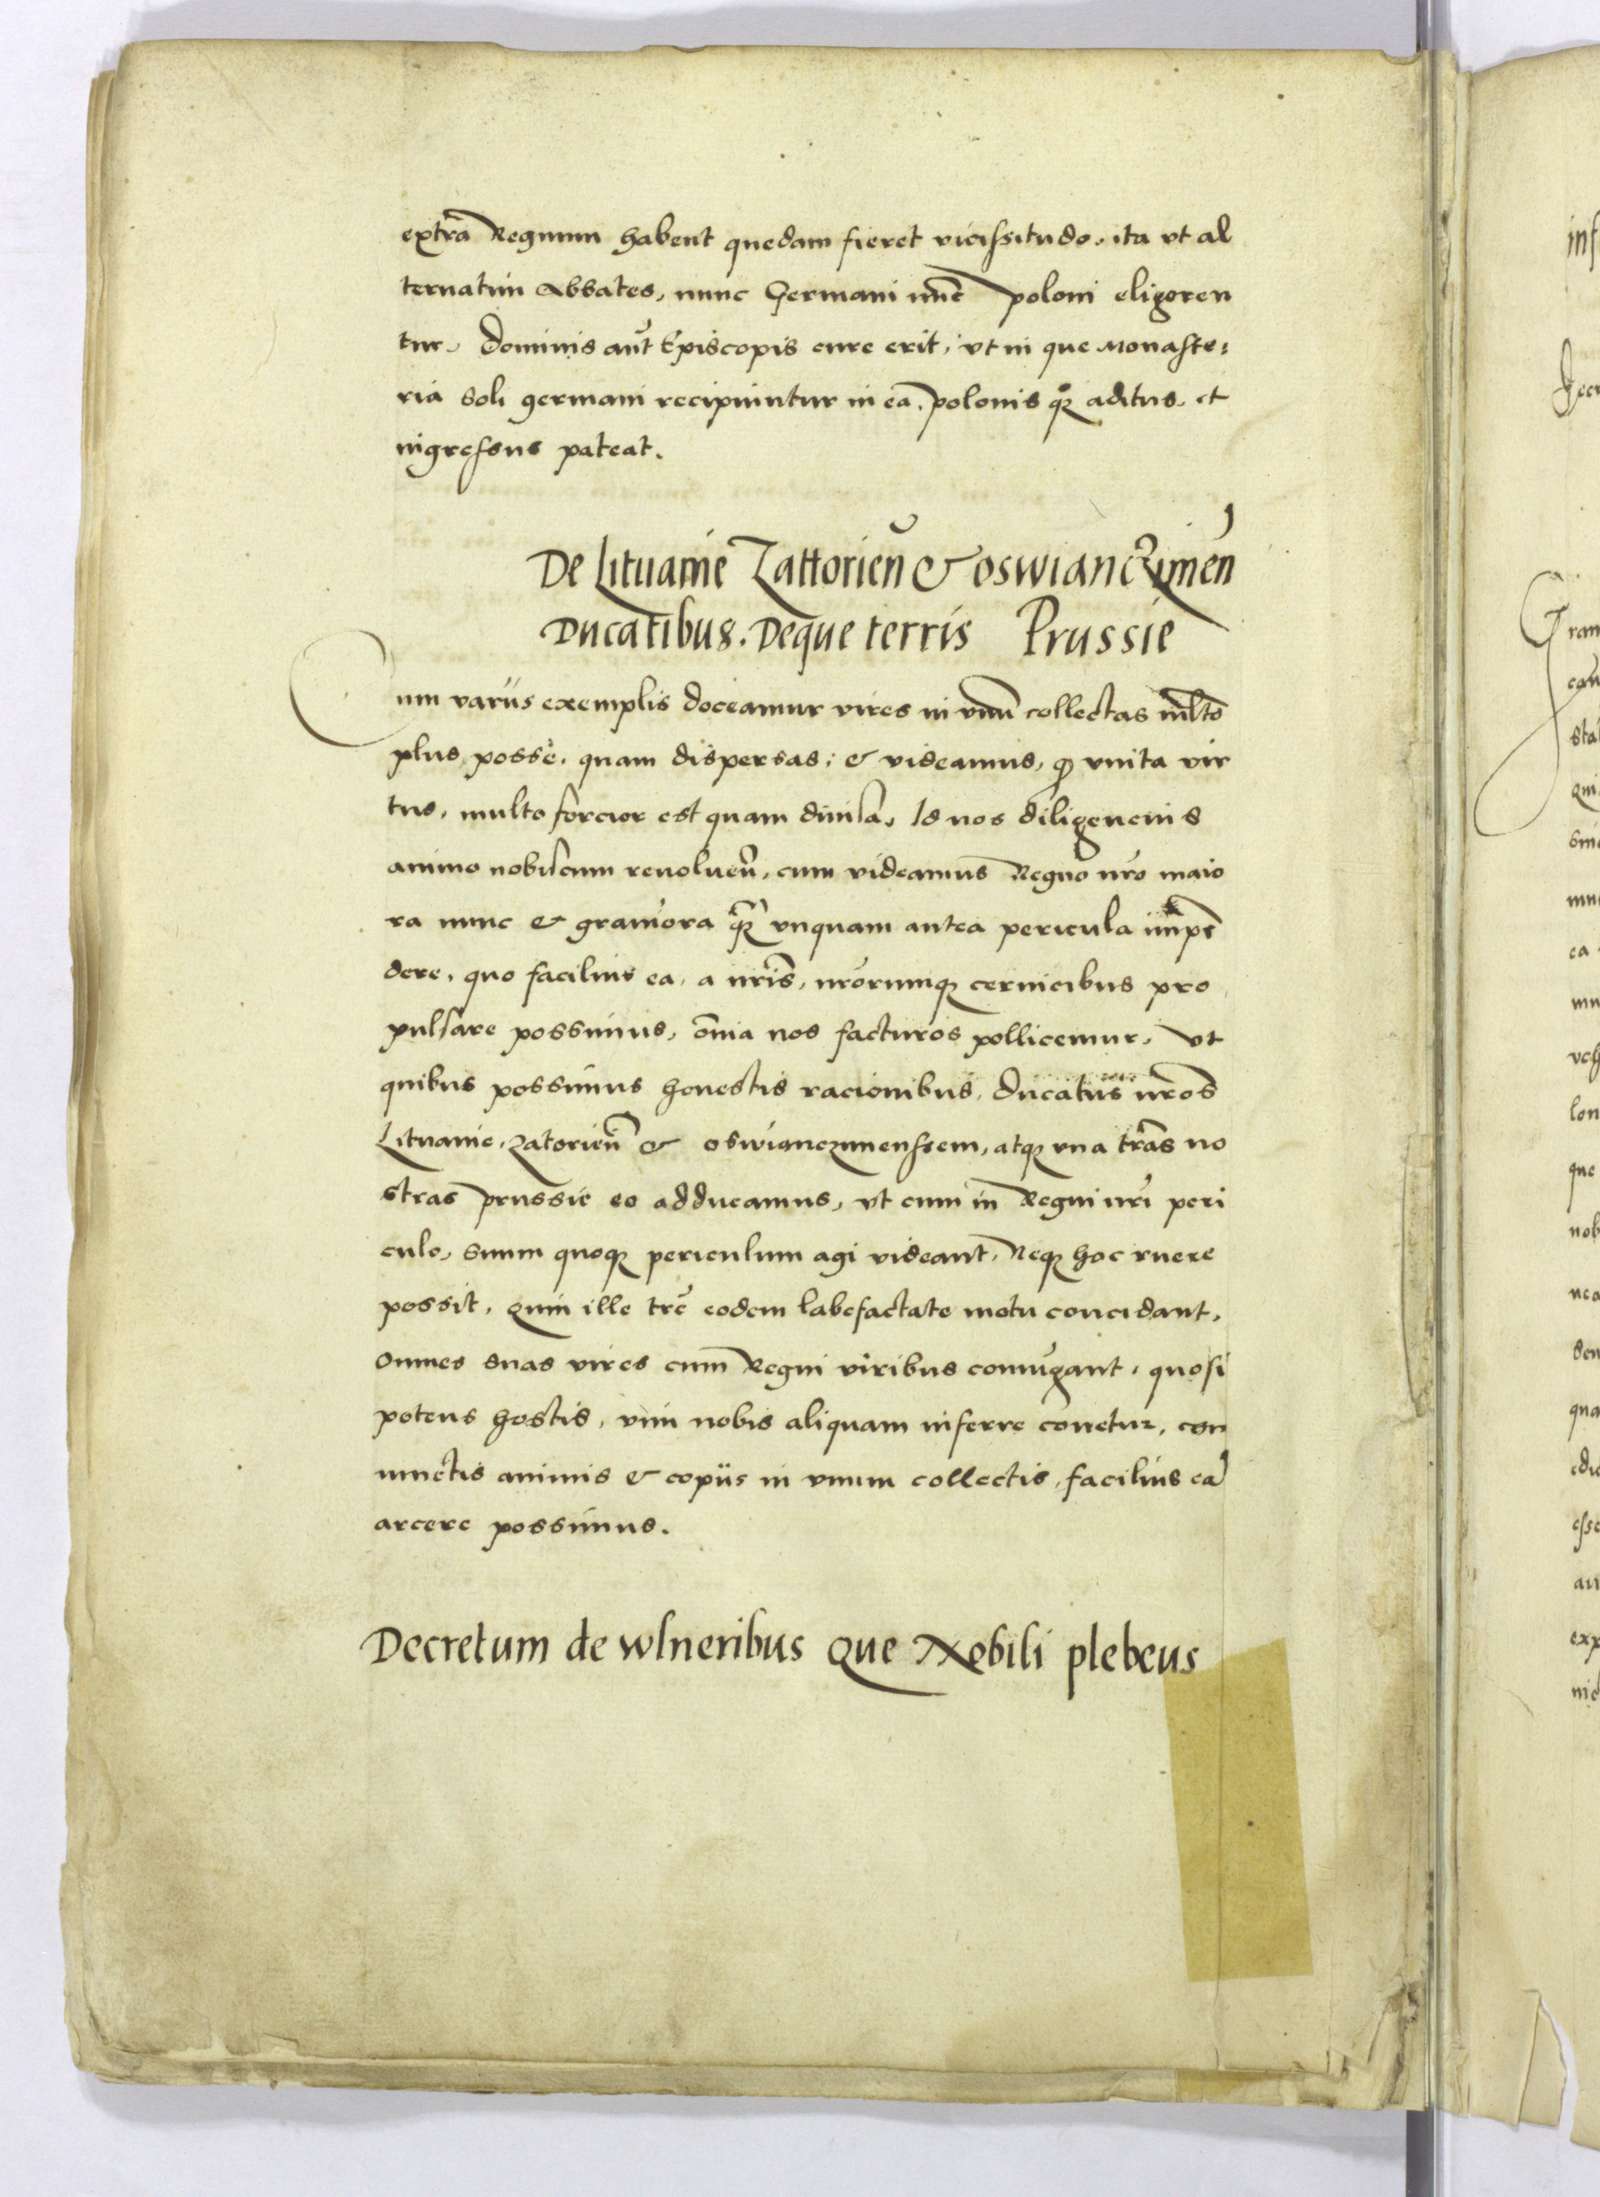 extra Regnum habent quedam fieret vicissitudo, ita vt al
ternatim Abbates, nunc Germani nūc Poloni eligeren
tur. Dominis aūt Episcopis cure erit, vt in que Monaste:
ria soli germani recipiuntur in ea, polonis q̄ aditus, et
ingressus pateat.
De Lituanie Zattorieñ & oswianczimeñ
Ducatibus. Deque terris Prussie
Cum variis exemplis doceamur vires in vnū collectas mlto
plus posse, quam dispersas; & videamus, q̄ vnita vir
tus, multo forcior est quam diuisa, Id nos diligencius
animo nobiscum reuoluen̄, cum videamus Regno nr̄o maio
ra nunc & grauiora q̄ vnquam antea pericula impē
dere, quo facilius ea, a nr̄is, nr̄orumq; ceruicibus pro
pulsare possimus, om̄ia nos facturos pollicemur, vt
quibus possimus honestis racionibus, Ducatus nr̄os
Lituanie, Zatorien̄ & oswianczimenssem, atq; vna tr̄as no
stras prussie eo adducamus, vt cum in Regni nr̄i peri
culo, suum quoq; periculum agi videant, Neq; hoc ruere
possit, quin ille tr̄e eodem labefactate motu concidant,
omnes suas vires cum Regni viribus coniūgant, quo si
potens hostis, vim nobis aliquam inferre conetur, con
iunctis animis & copiis in vnum collectis, facilius eā
arcere possimus.
Decretum de wlneribus que Nobili plebeus
inf
Gran
cau
sta
qui
ea
vch
lon
que
nob
nea
den
qua
esse
exp